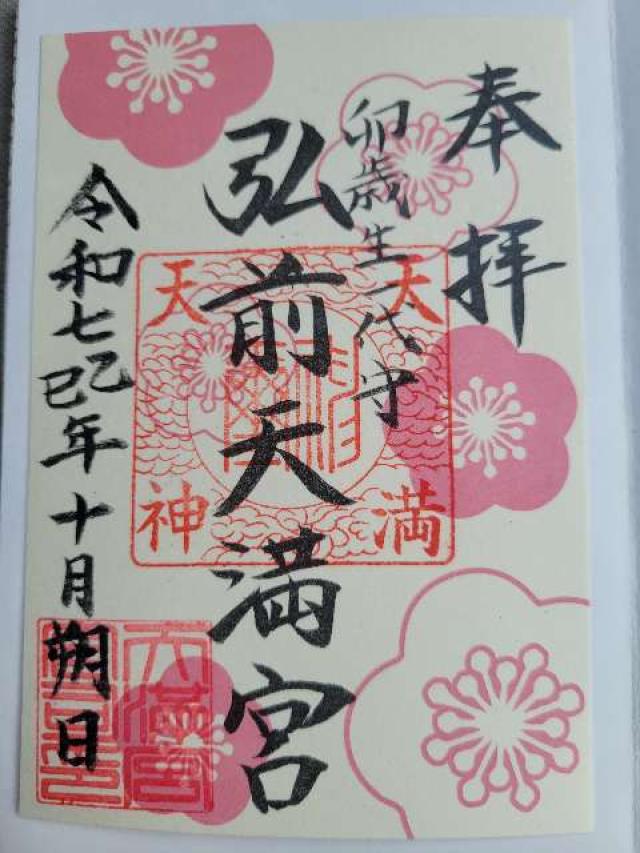 奉拝
卯歳生一代守
弘前天満宮
令和七乙巳年十月朔日
天満
天神